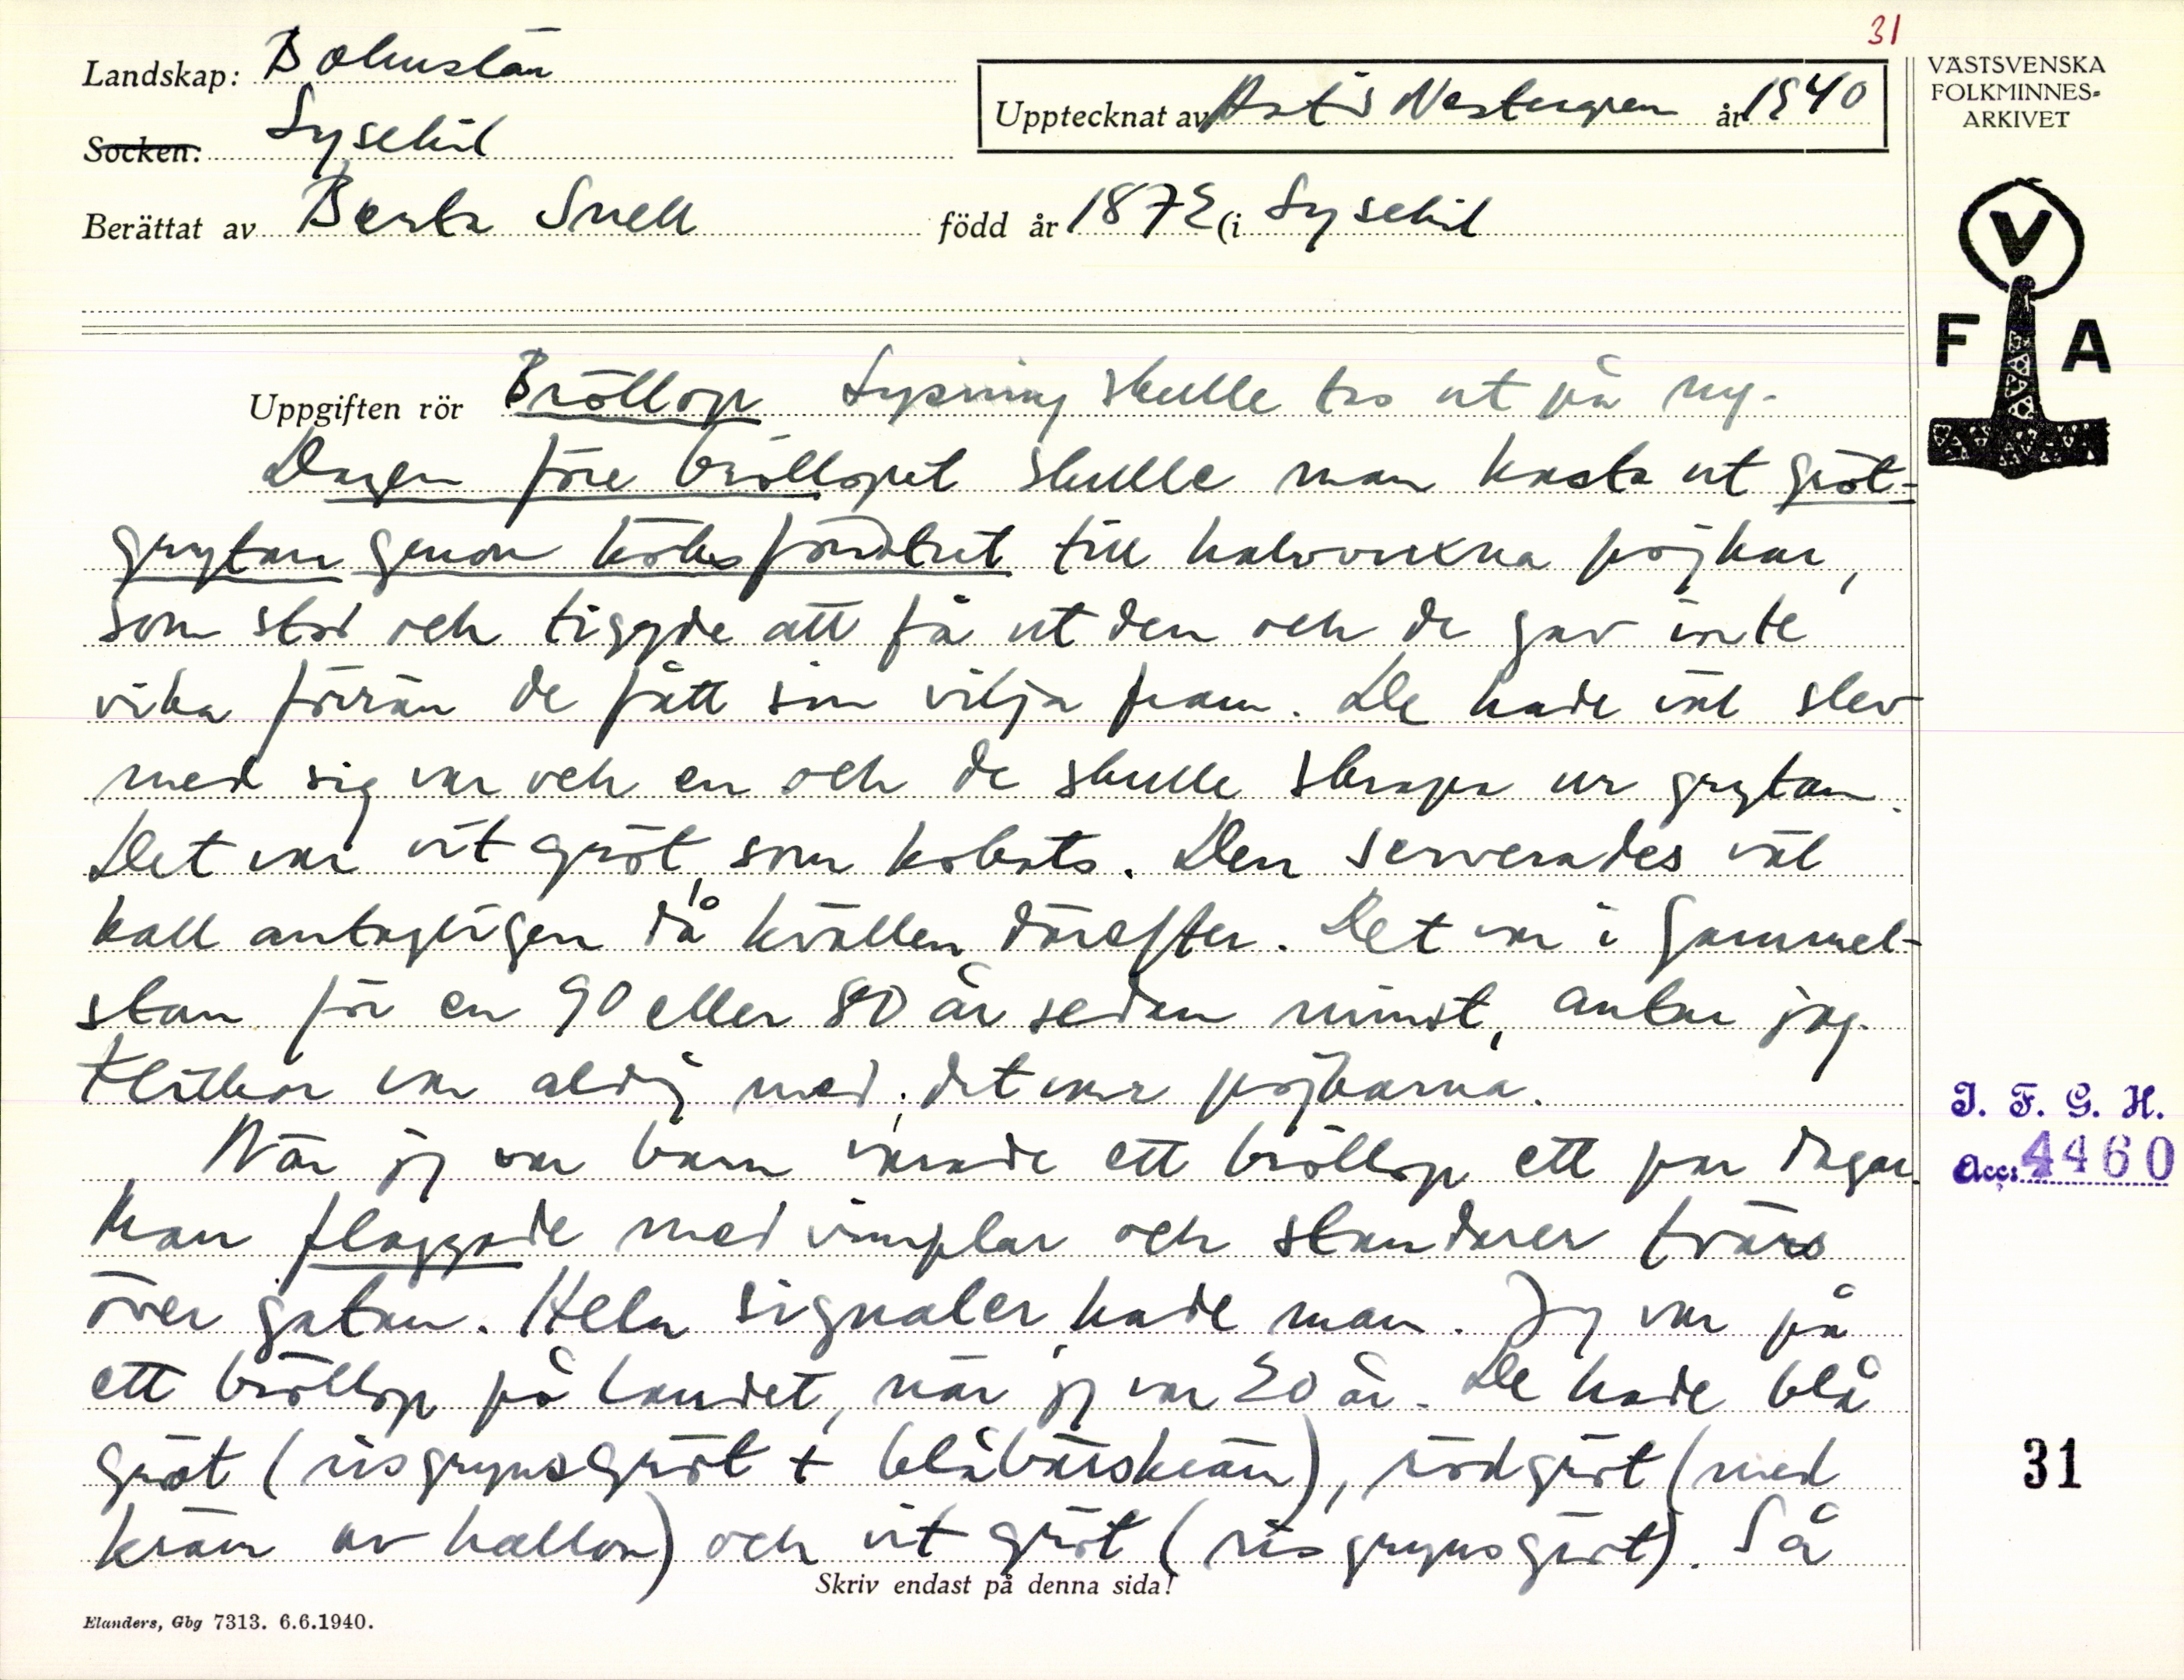 31
Landskap: Bohuslän
Upptecknat av Astis Westergren år 1940
VÄSTSVENSKA
FOLKMINNES-
ARKIVET
Socken: Lysekil
Berättat av Berta Snell född år 1872 (i Lysekil
V
F A
Uppgiften rör Bröllop Lysning skulle tas ut på ny.
Dagen före bröllopet skulle man kasta ut gröt-
grytan genom köksfönstret till halvvuxna pojkar,
som stod och tiggde att få ut den och de gav inte
vika förrän de fått sin vilja fram. De hade väl slev
med sig var och en och de skulle skrapa ur grytan.
Det var vit gröt, som kokats. Den serverades väl
kall antagligen då kvällen därefter. Det var i Gammel-
stan för en 90 eller 80 år sedan minst, antar jag.
Flickor var aldrig med, det var pojkarna.
När jag var barn varade ett bröllop ett par dagar.
Man flaggade med vimplar och standarer tvärs
över gatan. Hela signaler hade man. Jag var på
ett bröllop på landet, när jag var 20 år. De hade blå
gröt (risgrynsgröt + blåbärskräm), rödgröt (med
kräm av hallon) och vit gröt (risgrynsgröt). Så
Skriv endast på denna sida!
Elanders, Gbg 7313. 6.6.1940.
I. F. G. H.
Acc: 4460
31